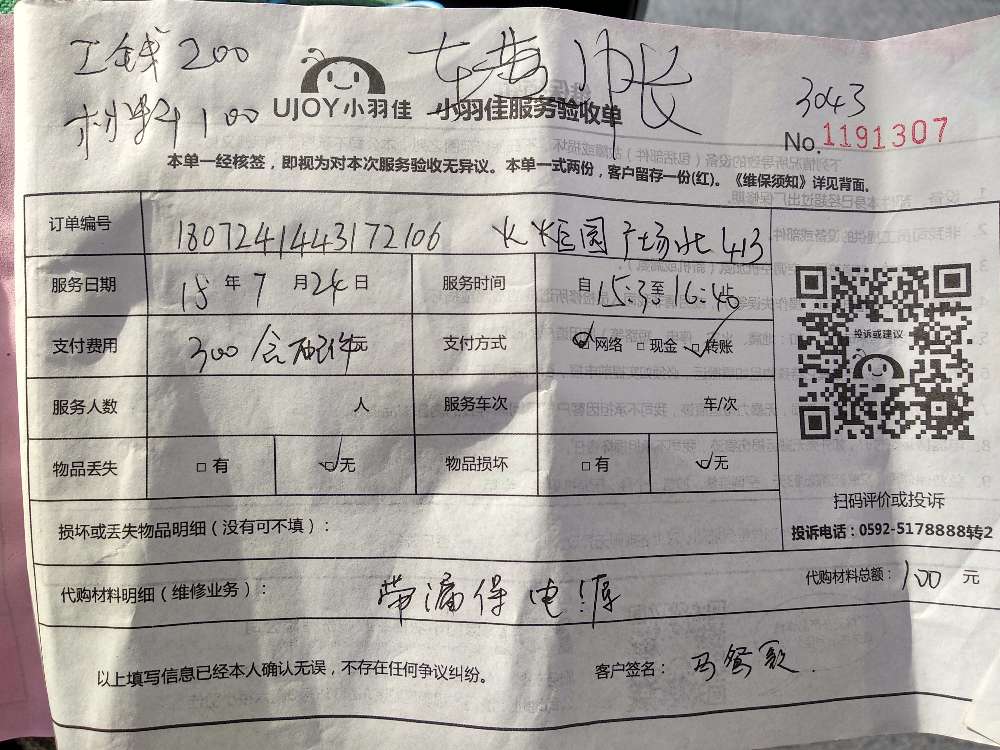 工钱200
材料100
UJOY小羽佳 小羽佳服务验收单
3043
No.1191307
本单一经核签，即视为对本次服务验收无异议。本单一式两份，客户留存一份(红)。《维保须知》详见背面。
订单编号 1807241443172106 火炬园广场北413
服务日期 18年7月24日 服务时间 自15:3至16:40
支付费用 300含配件元 支付方式 网络 现金 转账
服务人数 人 服务车次 车/次
物品丢失 有 无 物品损坏 有 无
投诉或建议
扫码评价或投诉
投诉电话：0592-5178888转2
损坏或丢失物品明细（没有可不填）：
代购材料明细（维修业务）： 带漏保电 代购材料总额：100元
以上填写信息已经本人确认无误，不存在任何争议纠纷。 客户签名：马